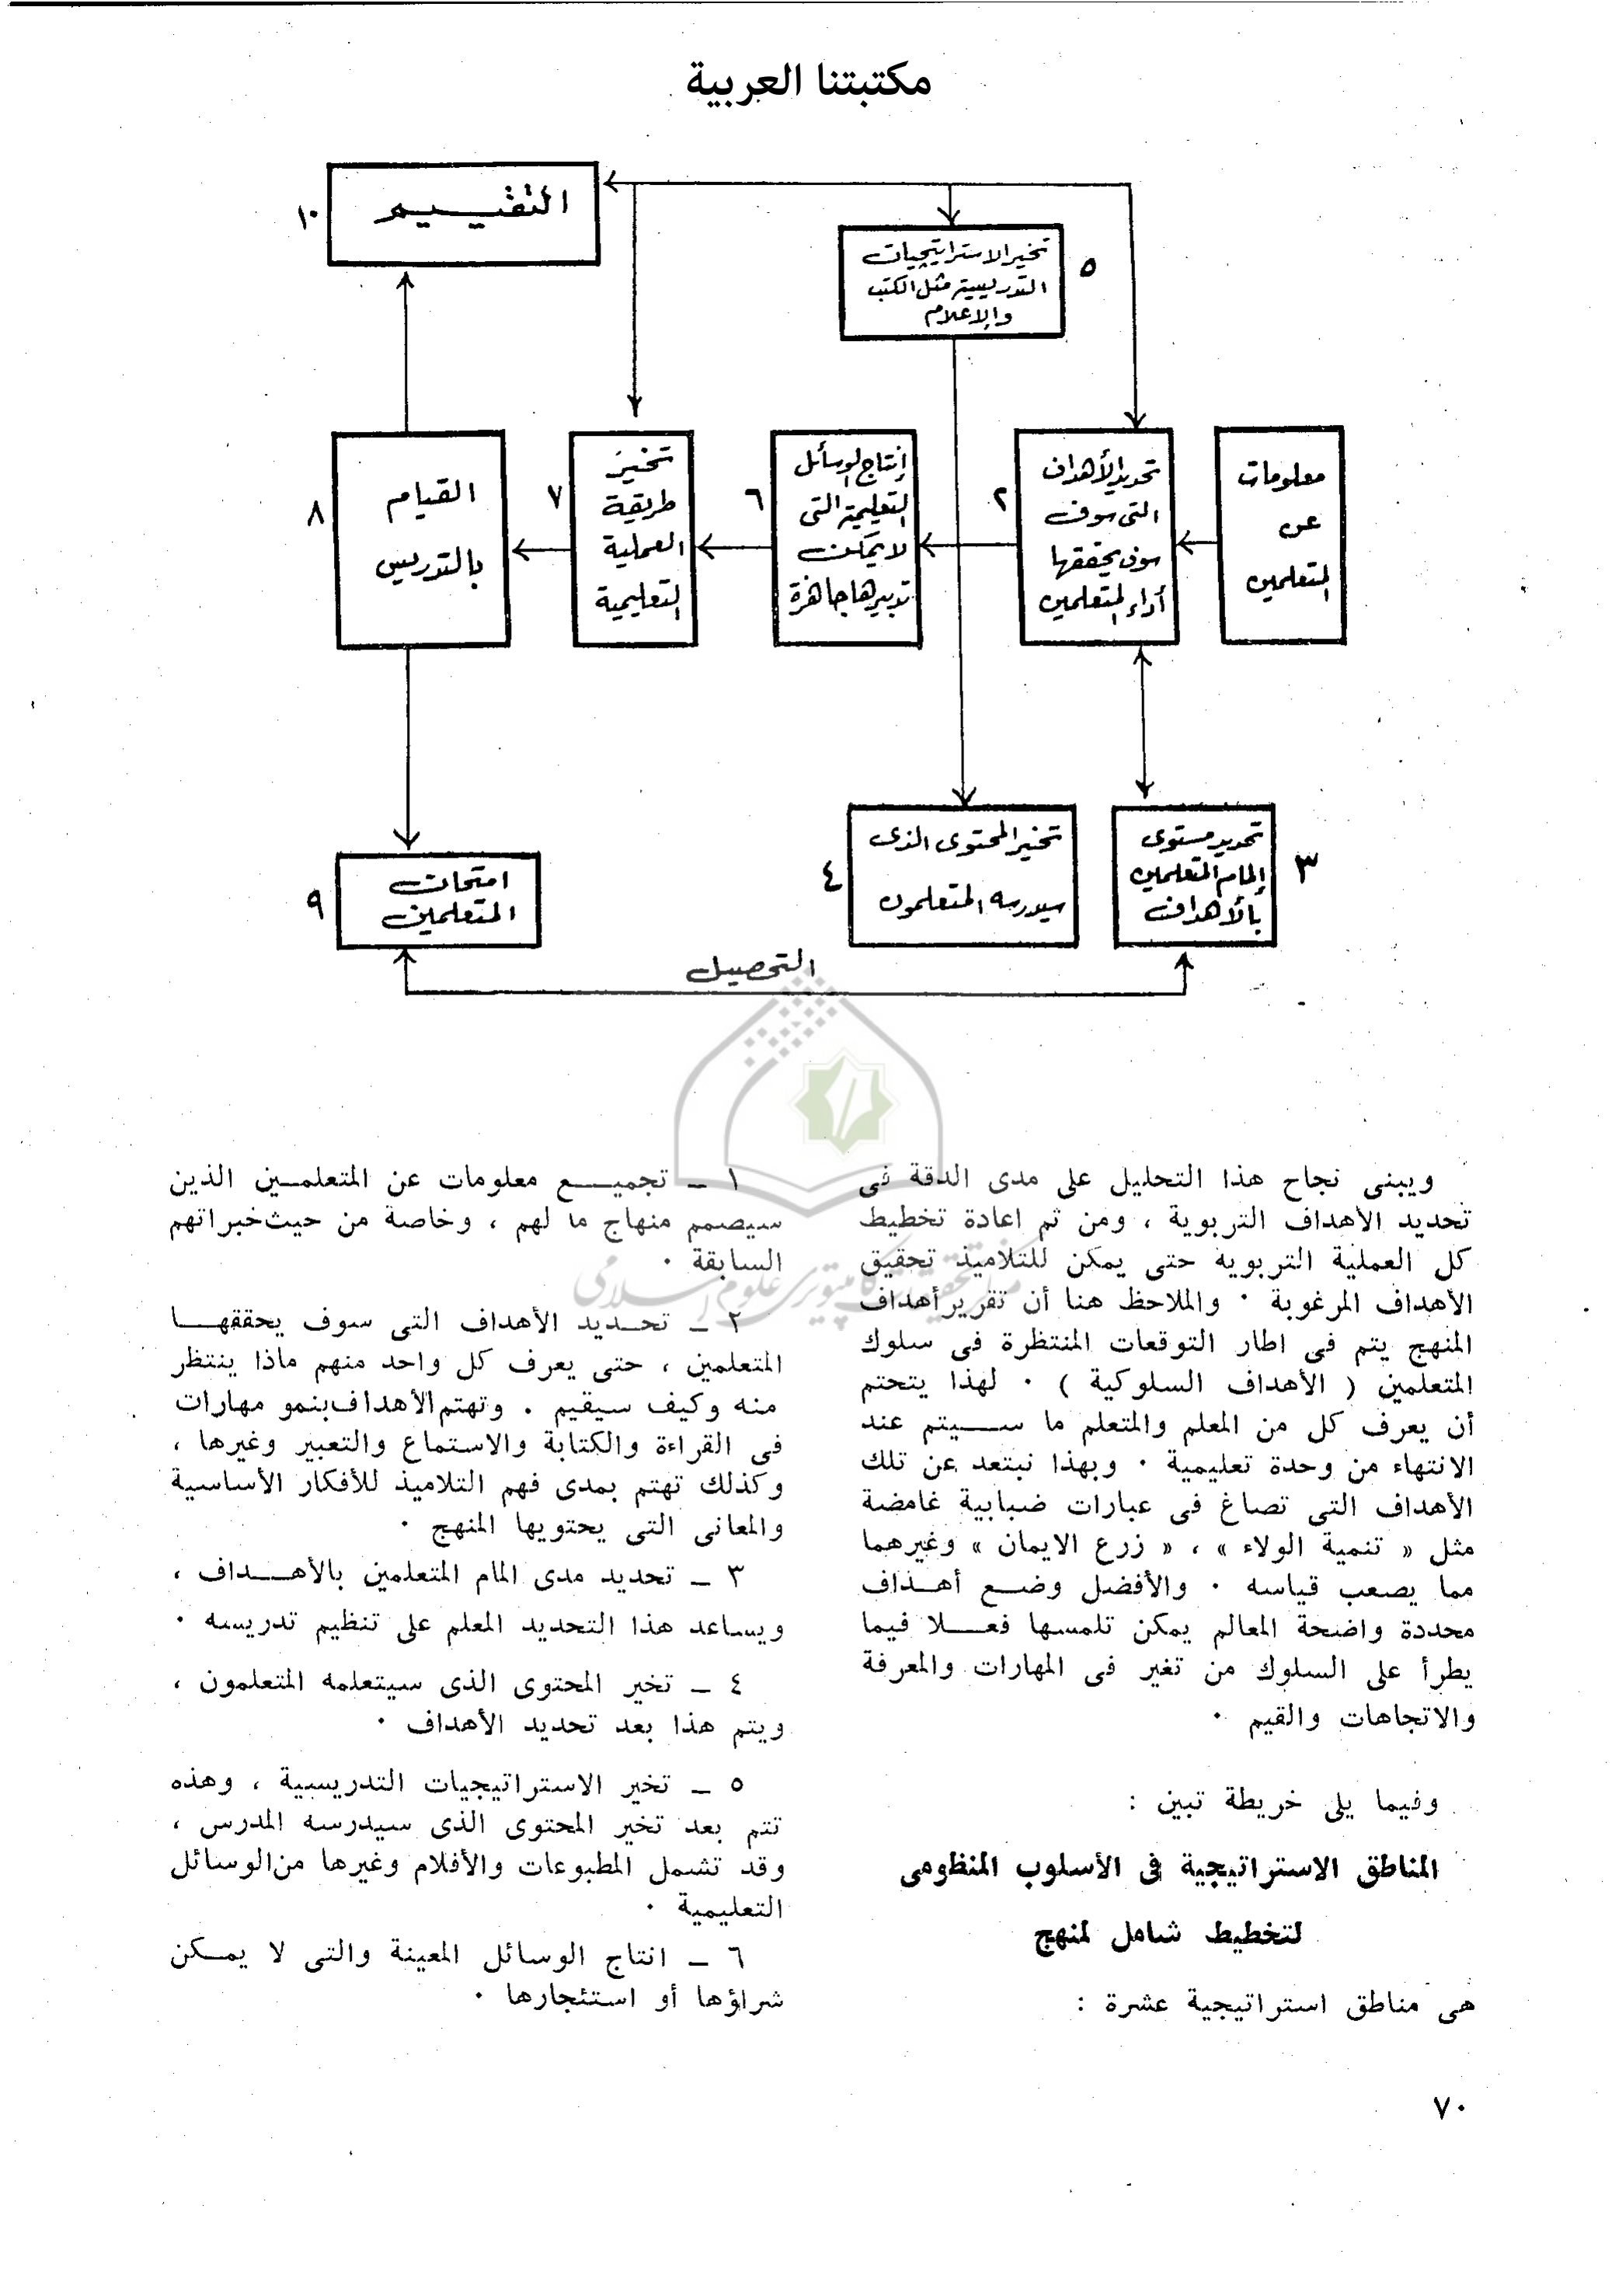 مكتبتنا العربية
التقييم
١٠
تخير الاستراتيجيات
التدريسية مثل الكتب
والاعلام
٥
معلومات
عن
المتعلمين
تحديد الأهداف
التى سوف
سوف يحققها
أداء المتعلمين
٢
إنتاج الوسائل
التعليمية التى
لا يمكن
تدبيرها جاهزة
٦
تخير
طريقة
العملية
التعليمية
٧
القيام
بالتدريس
٨
تحديد مستوى
إلمام المتعلمين
بالأهداف
٣
تخير المحتوى الذى
سيدرسه المتعلمون
٤
امتحان
المتعلمين
٩
التحصيل
ويبنى نجاح هذا التحليل على مدى الدقة فى
تحديد الأهداف التربوية ، ومن ثم اعادة تخطيط
كل العملية التربويه حتى يمكن للتلاميذ تحقيق
الأهداف المرغوبة ٠ والملاحظ هنا أن تقرير أهداف
المنهج يتم فى اطار التوقعات المنتظرة فى سلوك
المتعلمين ( الأهداف السلوكية ) ٠ لهذا يتحتم
أن يعرف كل من المعلم والمتعلم ما سيتم عند
الانتهاء من وحدة تعليمية ٠ وبهذا نبتعد عن تلك
الأهداف التى تصاغ فى عبارات ضبابية غامضة
مثل « تنمية الولاء » ، « زرع الايمان » وغيرهما
مما يصعب قياسه ٠ والأفضل وضع أهداف
محددة واضحة المعالم يمكن تلمسها فعلا فيما
يطرأ على السلوك من تغير فى المهارات والمعرفة
والاتجاهات والقيم ٠
وفيما يلى خريطة تبين :
المناطق الاستراتيجية فى الأسلوب المنظومى
لتخطيط شامل لمنهج
هى مناطق استراتيجية عشرة :
١ ـ تجميع معلومات عن المتعلمين الذين
سيصمم منهاج ما لهم ، وخاصة من حيث خبراتهم
السابقة ٠
٢ ـ تحديد الأهداف التى سوف يحققها
المتعلمين ، حتى يعرف كل واحد منهم ماذا ينتظر
منه وكيف سيقيم . وتهتم الأهداف بنمو مهارات
فى القراءة والكتابة والاستماع والتعبير وغيرها ،
وكذلك تهتم بمدى فهم التلاميذ للأفكار الأساسية
والمعانى التى يحتويها المنهج ٠
٣ ـ تحديد مدى المام المتعلمين بالأهداف ،
ويساعد هذا التحديد المعلم على تنظيم تدريسه ٠
٤ ـ تخير المحتوى الذى سيتعلمه المتعلمون ،
ويتم هذا بعد تحديد الأهداف ٠
٥ ـ تخير الاستراتيجيات التدريسية ، وهذه
تتم بعد تخير المحتوى الذى سيدرسه المدرس ،
وقد تشمل المطبوعات والأفلام وغيرها من الوسائل
التعليمية ٠
٦ ـ انتاج الوسائل المعينة والتى لا يمكن
شراؤها أو استئجارها ٠
٧٠